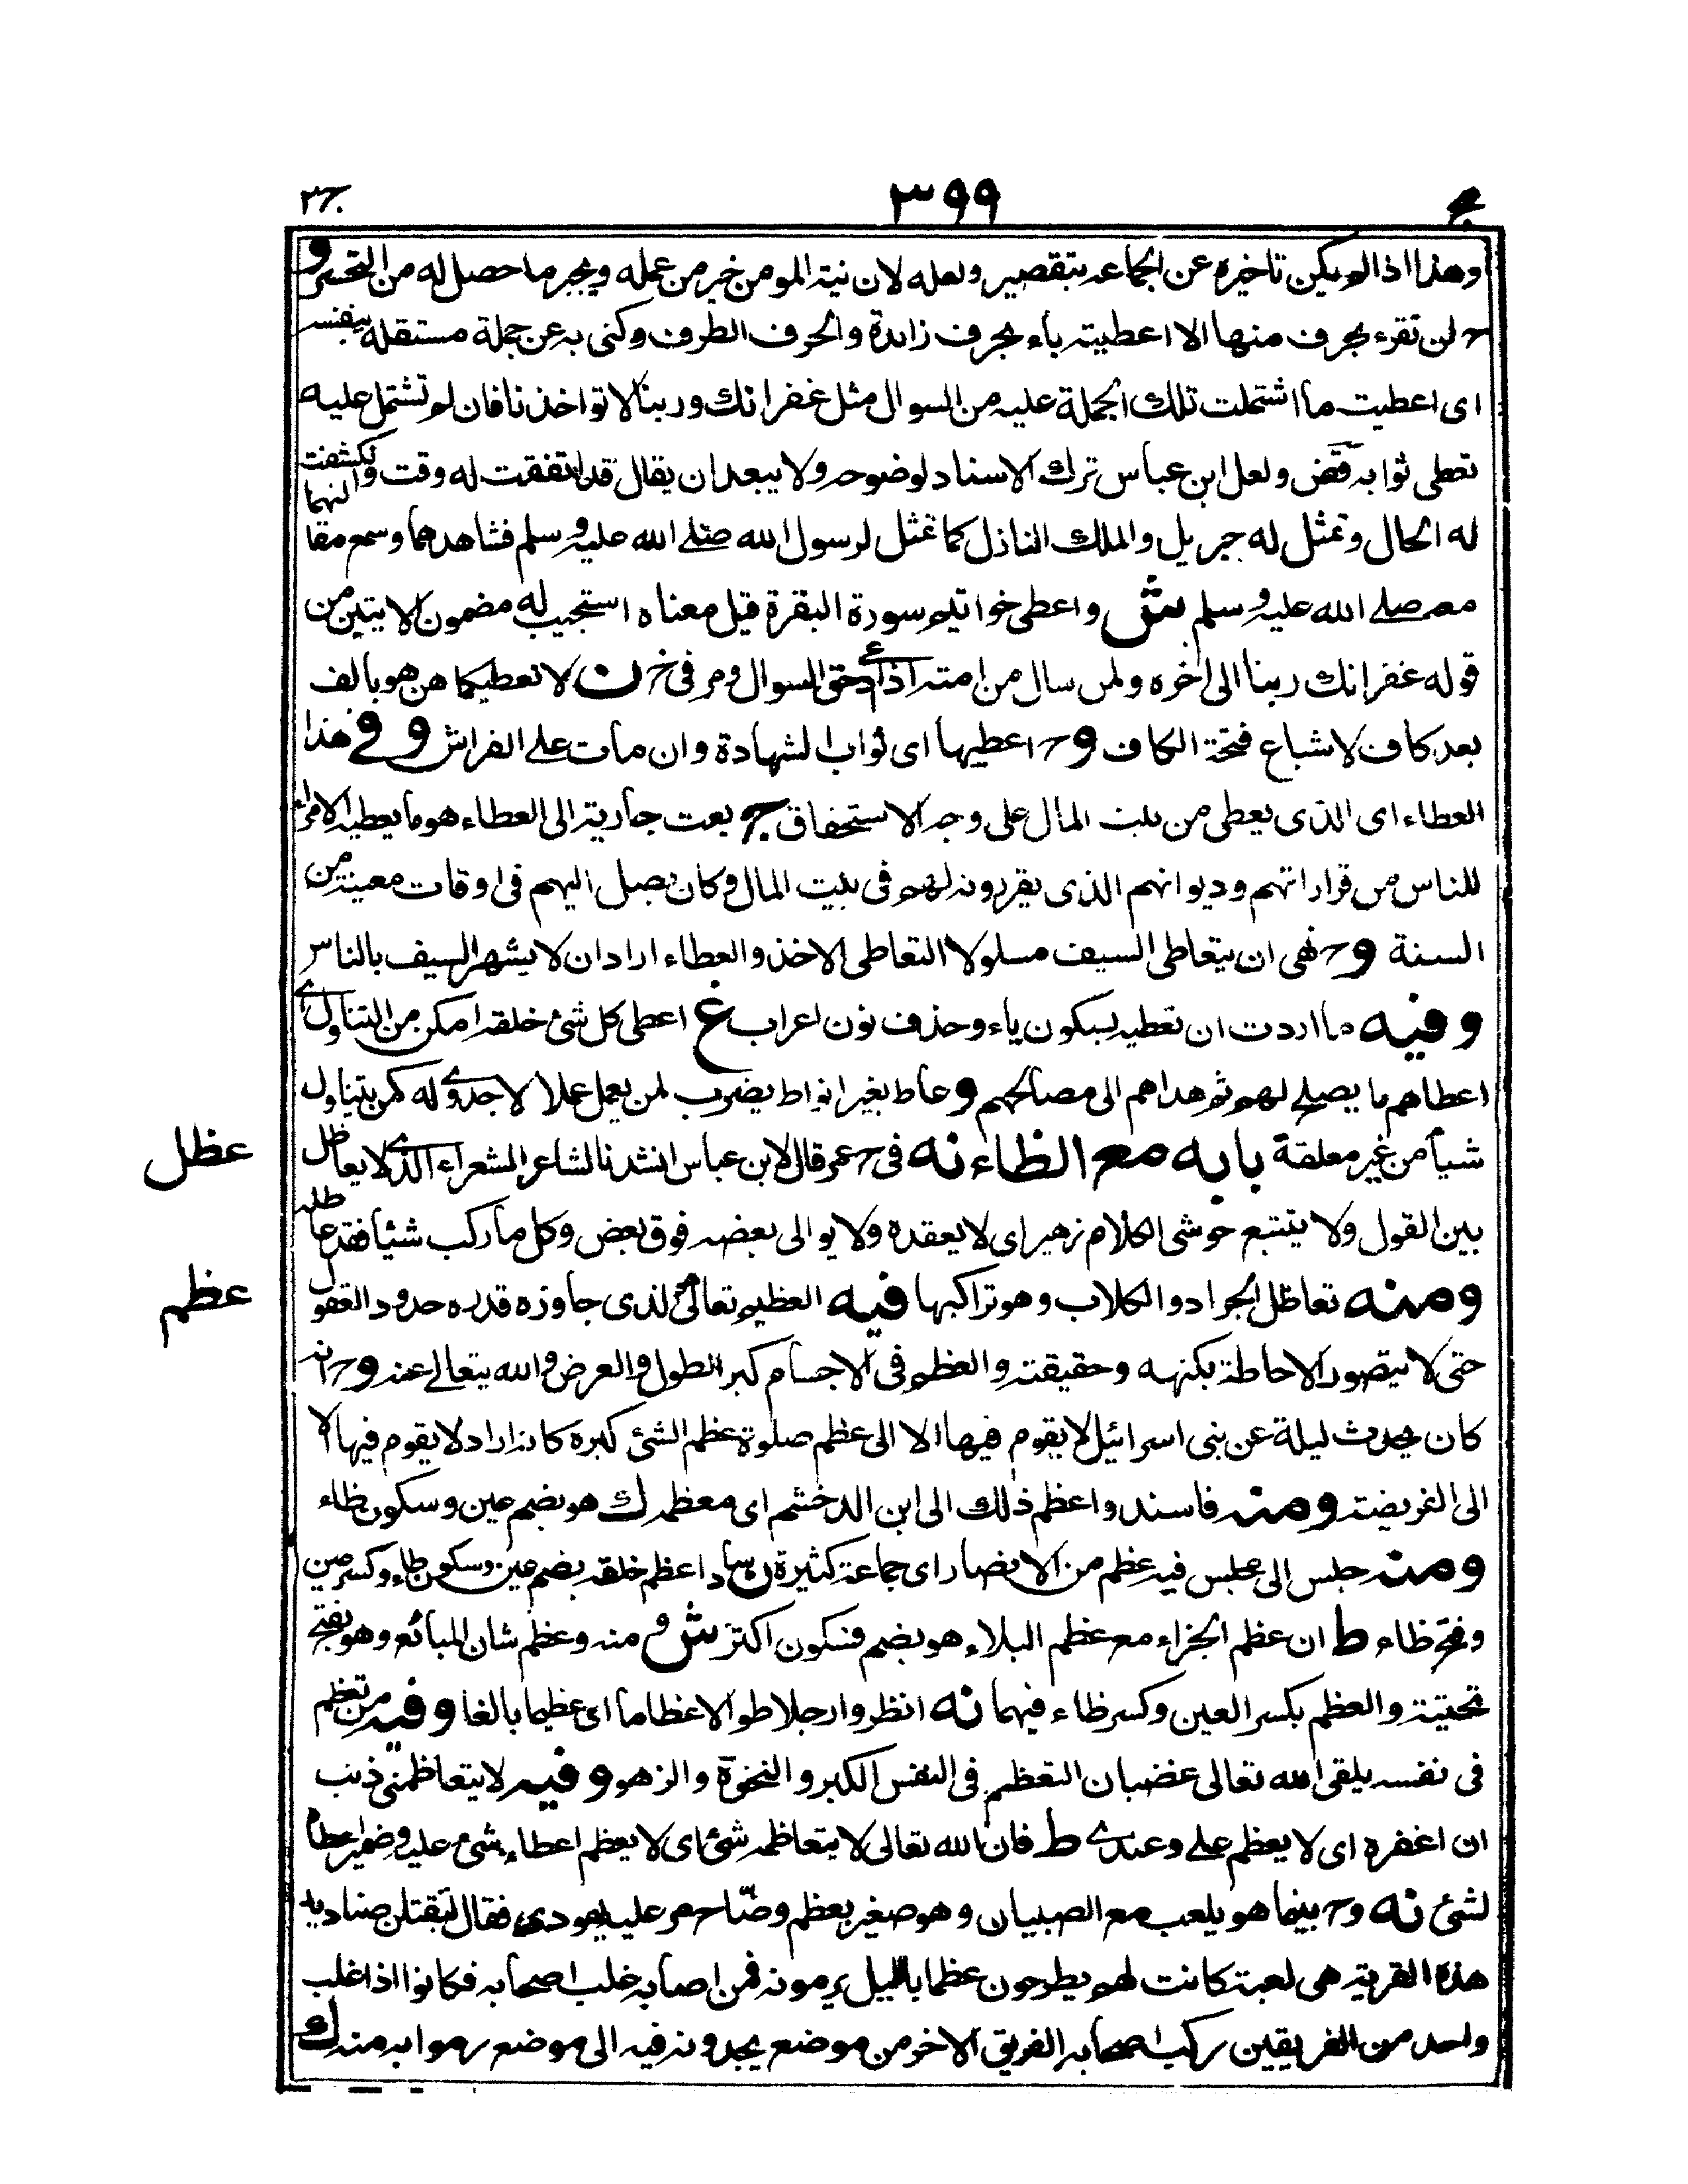 ٣٩٩
وهذا اذا لم يكن تاخيره عن الجماعة بتقصير ولعله لان نية المومن خير من عمله ويجبر ما حصل له من التحسر و
ح لن تقرء بحرف منها الا اعطيته باء بحرف زائدة والحرف الطرف وكنى به عن جملة مستقلة بنفسه
اى اعطيت ما اشتملت تلك الجملة عليه من السوال مثل غفرانك وربنا لا تواخذنا فان لم تشتمل عليه
تعطى ثوابه قض ولعل ابن عباس ترك الاسناد لوضوحه ولا يبعد ان يقال قد اتفقت له وقت وانكشفت
له الحال وتمثل له جبريل والملك النازل كما تمثل لرسول الله صلے الله عليه وسلم فشاهدهما وسمع مقالتهما
معه صلے الله عليه وسلم ش واعطى خواتيم سورة البقرة قيل معناه استجيب له مضمون الايتين من
قوله غفرانك ربنا الى اخره ولمن سال من امته اذا دعى حق السوال ومر فى خ ن لا تعطيكاهن هو بالف
بعد كاف لاشباع فتحة الكاف و ح اعطيها اى ثواب الشهادة وان مات على الفراش و فے هذا
العطاء اى الذى يعطى من بيت المال على وجه الاستحقاق ج بعت جارية الى العطاء هو ما يعطيه الامراء
للناس من قراراتهم وديوانهم الذى يقررونه لهم فى بيت المال وكان يصل اليهم فى اوقات معينة من
السنة و ح نهى ان يتعاطى السيف مسلولا التعاطى الاخذ والعطاء اراد ان لا يشهر السيف بالناس
وفيه ما اردت ان تعطيه بسكون ياء وحذف نون اعراب غ اعطى كل شئ خلقه امكن من التناول اے
اعطاهم ما يصلح لهم ثم هداهم الى مصالحهم و عاط بغير انواط يضرب لمن يعمل عملا لا جدوے له كمن يتناول
شيأ من غير معلقة بابه مع الظاء نه فى ح عمر قال لابن عباس انشدنا لشاعر الشعراء الذے لا يعاظل
بين القول ولا يتتبع حوشى الكلام زهير اى لا يعقده ولا يوالى بعضه فوق بعض وكل ما ركب شيئا فقد عاظله
ومنه تعاظل الجراد والكلاب وهو تراكبها فيه العظيم تعالى الذى جاوز قدره حدود العقول
حتى لا يتصور الاحاطة بكنهه وحقيقته والعظم فى الاجسام كبر الطول والعرض والله يتعالى عنه و ح انه
كان يحدث ليلة عن بنى اسرائيل لا يقوم فيها الا الى عظم صلوة عظم الشئ كبره كانه اراد لا يقوم فيها الا
الى الفريضة ومنه فاسندوا عظم ذلك الى ابن الدخشم اى معظمه ك هو بضم عين وسكون ظاء
ومنه جلس الى مجلس فيه عظم من الانصار اى جماعة كثيرة ن اعظم خلقه بضم عين وسكون ظاء وكسر عين
وفتح ظاء ط ان عظم الجزاء مع عظم البلاء هو بضم فسكون اكثر ش و منه وعظم شان المبائع وهو بفتح
تحتية والعظم بكسر العين وكسر ظاء فيهما نه انظروا رجلا طوالا عظاما اى عظيما بالغا وفيه من تعظم
فى نفسه يلقى الله تعالى غضبان التعظم فى النفس الكبر والنخوة والزهو وفيه لا يتعاظمنى ذنب
ان اغفره اى لا يعظم علے وعندے ط فان الله تعالى لا يتعاظمه شئ اى لا يعظم اعطاء شئ عليه وضمير اعطاه
لشئ نه و ح بينما هو يلعب مع الصبيان وهو صغير بعظم وضاح مر عليه يهودى فقال لتقتلن صناديد
هذه القرية هى لعبة كانت لهم يطرحون عظما بالليل يرمونه فمن اصابه غلب اصحابه فكانوا اذا غلب
واحد من الفريقين ركب اصحابه الفريق الاخر من موضع يجدونه فيه الى موضع رموا به منه ك
عظل
عظم